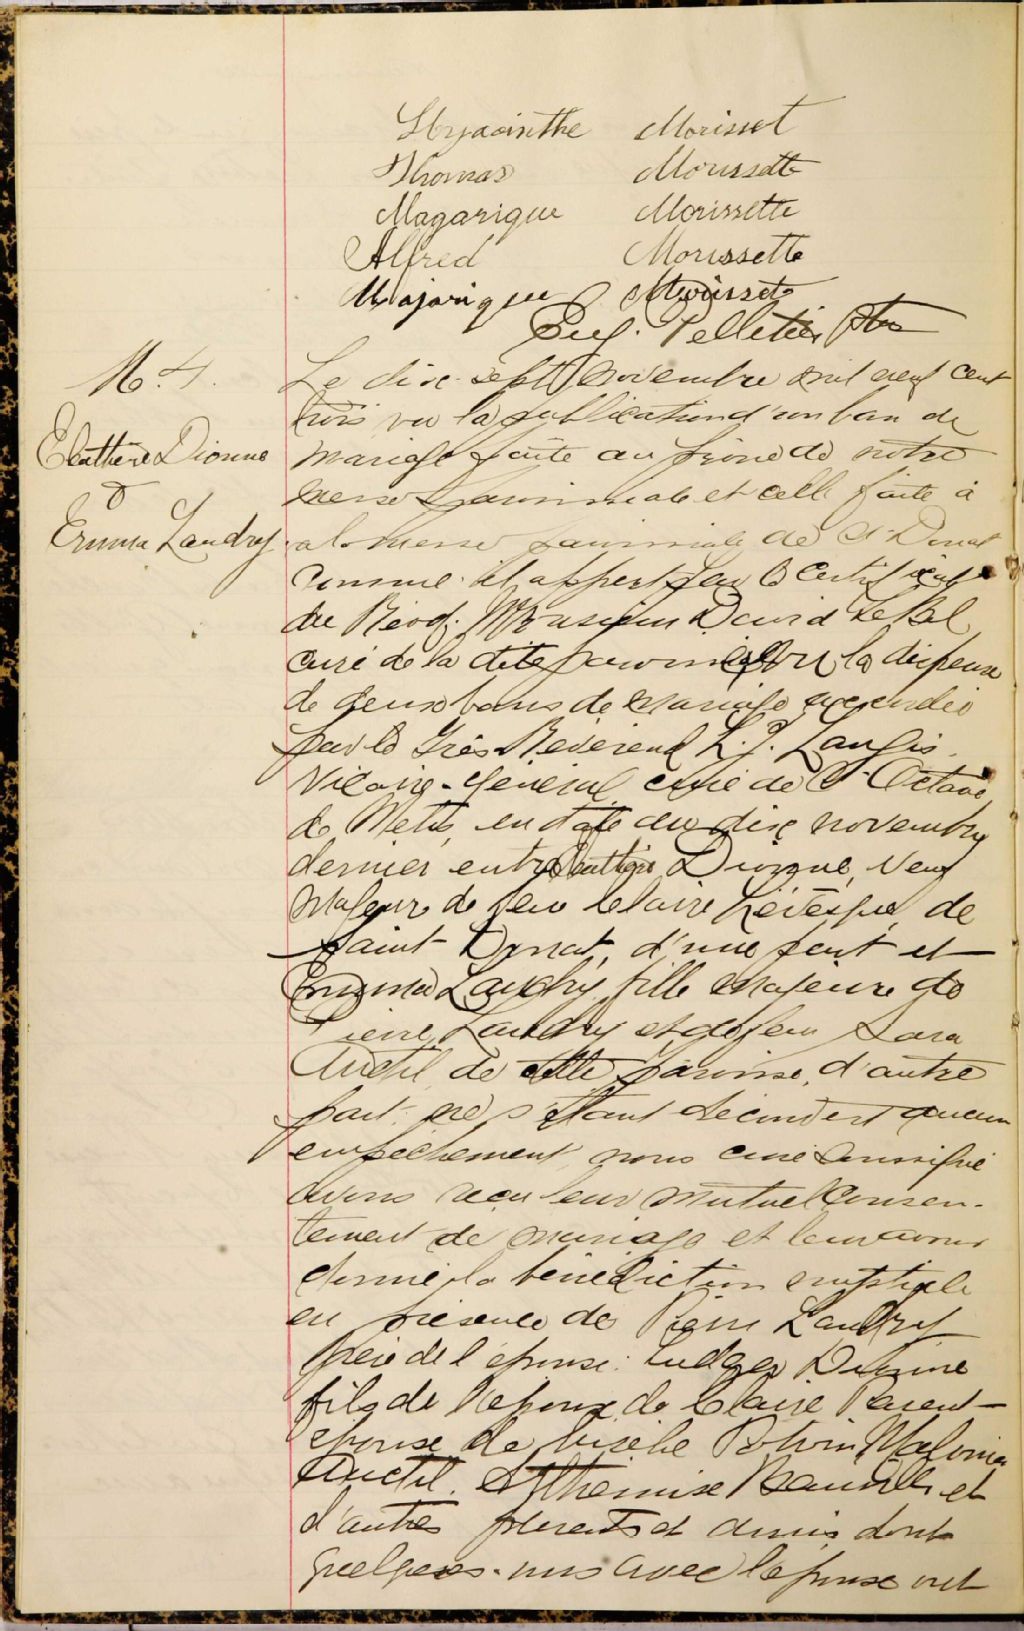 Hyacinthe Morisset
Thomas Morissette
Magarique Morissette
Alfred Morissette
Majorique Morisset
Eug. Pelletier Ptre
M. 4.
Eleuthère Dionne
&
Emma Landry
Le dix-sept novembre mil neuf cent
trois vu la publication d'un ban de
mariage faite au prône de notre
messe paroissiale et celle faite à
a la messe paroissiale de St Donat
comme il appert par le certificat
du Révd. Monsieur David LeBel
curé de la dite paroisse vu la dispense
de deux bans de mariage accordée
par le Très Révérend L. J. Langis
Vicaire-Général curé de St Octave
de Métis, en date du dix novembre
dernier entre Eleuthère Dionne, veuf
majeur de feu Claire Lévesque, de
Saint-Donat, d'une part et
Emma Landry, fille majeure de
Pierre Landry et de feu Sara
Anctil, de cette paroisse, d'autre
part, ne s'étant découvert aucun
empêchement, nous curé soussigné
avons reçu leur mutuel consen-
tement de mariage et leur avons
donné la bénédiction nuptiale
en présence de Pierre Landry
père de l'épouse, Ludger Dionne
fils de l'époux, de Claire Parent
épouse de Potvin, Malvina
Anctil, et
d'autres parents et amis dont
quelques-uns avec l'épouse ont